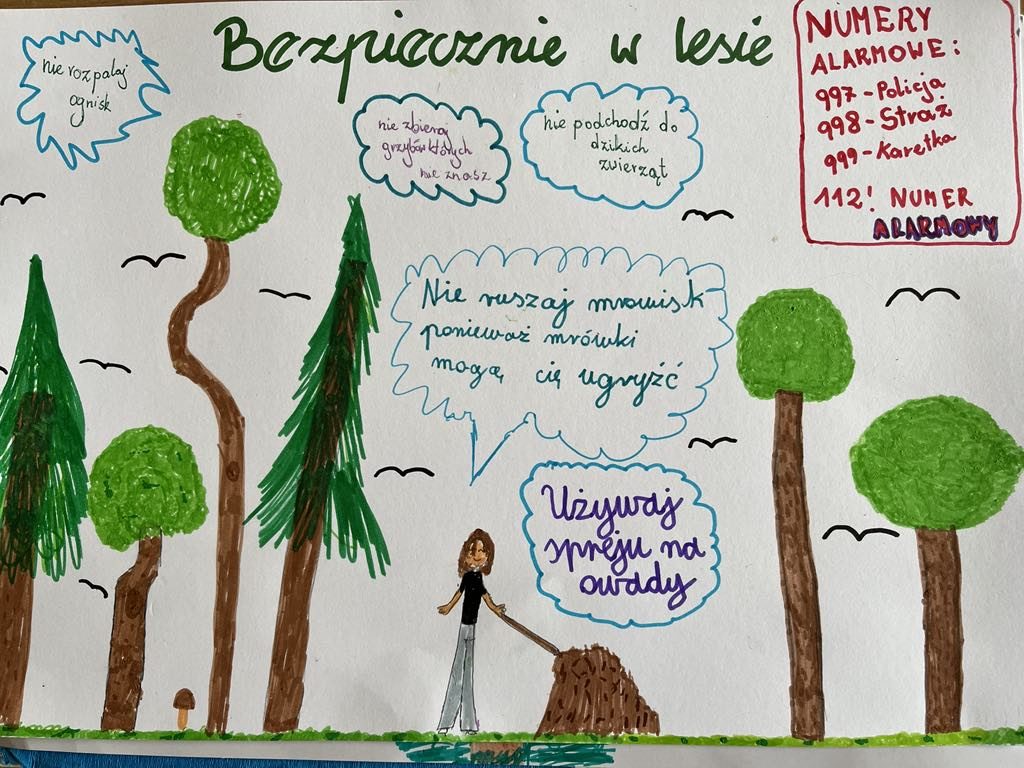 Bezpiecznie w lesie
nie rozpalaj
ognisk
nie zbieraj
grzybów których
nie znasz
nie podchodź do
dzikich
zwierząt
NUMERY
ALARMOWE:
997-Policja
998-Straż
999-Karetka
112! NUMER
ALARMOWY
Nie ruszaj mrowisk
ponieważ mrówki
mogą cię ugryźć
Używaj
spreju na
owady